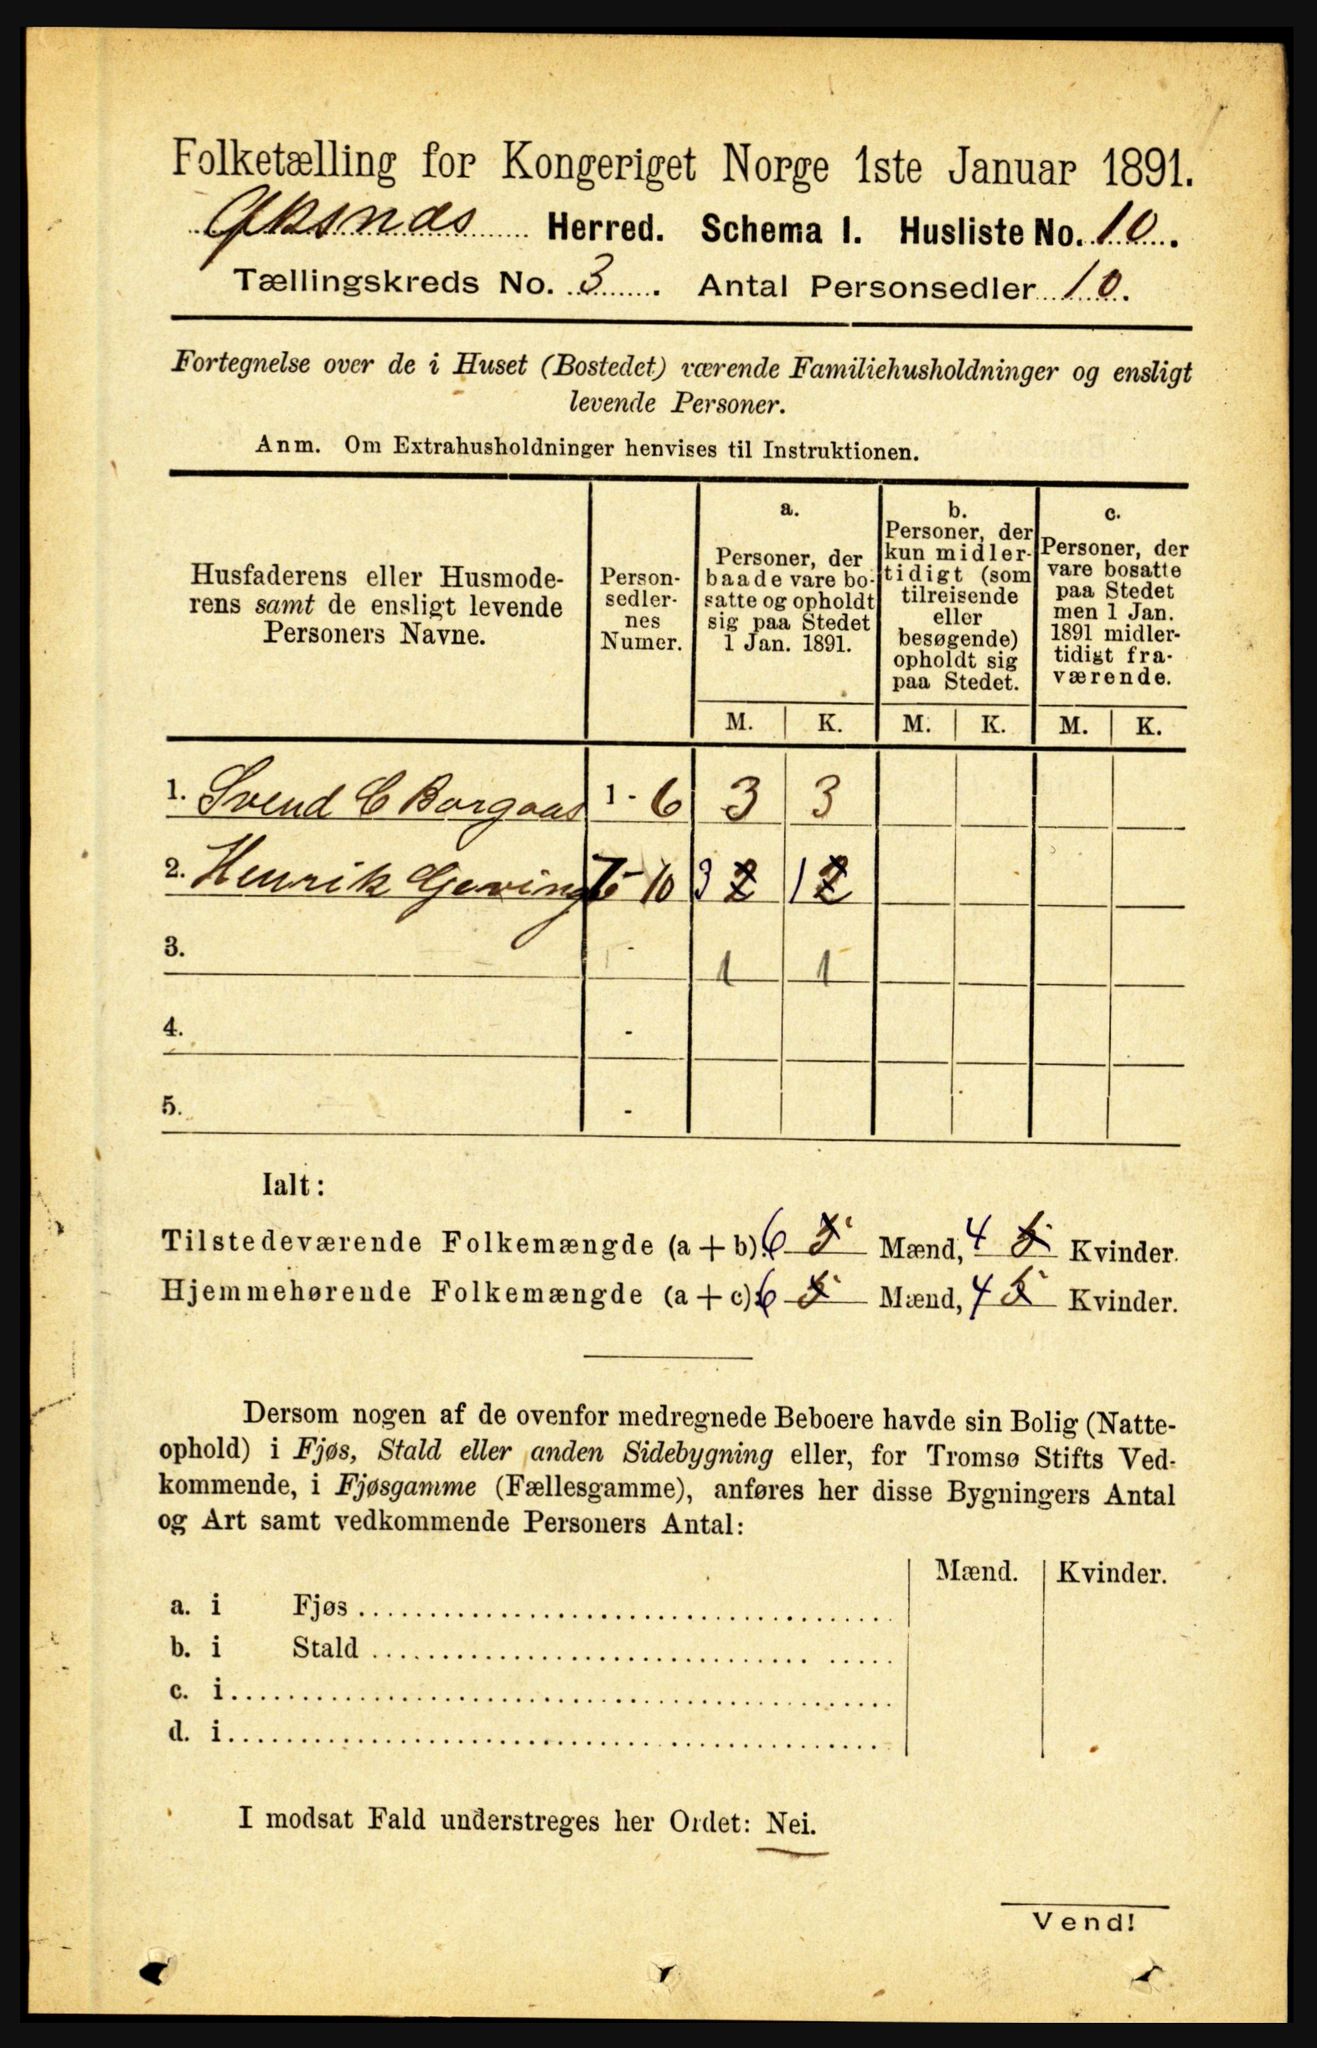 Folketælling for Kongeriget Norge 1ste Januar 1891.
Øksnæs Herred. Schema I. Husliste No. 10.
Tællingskreds No. 3. Antal Personsedler 10.
Fortegnelse over de i Huset (Bostedet) værende Familiehusholdninger og ensligt
levende Personer.
Anm. Om Extrahusholdninger henvises til Instruktionen.
Husfaderens eller Husmode-
rens samt de ensligt levende
Personers Navne.
Person-
sedler-
nes
Numer.
a.
Personer, der
baade vare bo-
satte og opholdt
sig paa Stedet
1 Jan. 1891.
b.
Personer, der
kun midler-
tidigt (som
tilreisende
eller
besøgende)
opholdt sig
paa Stedet.
c.
Personer, der
vare bosatte
paa Stedet
men 1 Jan.
1891 midler-
tidigt fra-
værende.
M. K. M. K. M. K.
1. Svend C Borgaas 1 - 6 3 3
2. Henrik Geving 7 - 10 3 2 1 2
3. - 1 1
4. -
5. -
Ialt:
Tilstedeværende Folkemængde (a + b) 6 5 Mænd, 4 5 Kvinder.
Hjemmehørende Folkemængde (a + c): 6 5 Mænd, 4 5 Kvinder.
Dersom nogen af de ovenfor medregnede Beboere havde sin Bolig (Natte-
ophold) i Fjøs, Stald eller anden Sidebygning eller, for Tromsø Stifts Ved-
kommende, i Fjøsgamme (Fællesgamme), anføres her disse Bygningers Antal
og Art samt vedkommende Personers Antal:
Mænd. Kvinder.
a. i Fjøs
b. i Stald
c. i
d. i
I modsat Fald understreges her Ordet: Nei.
Vend!